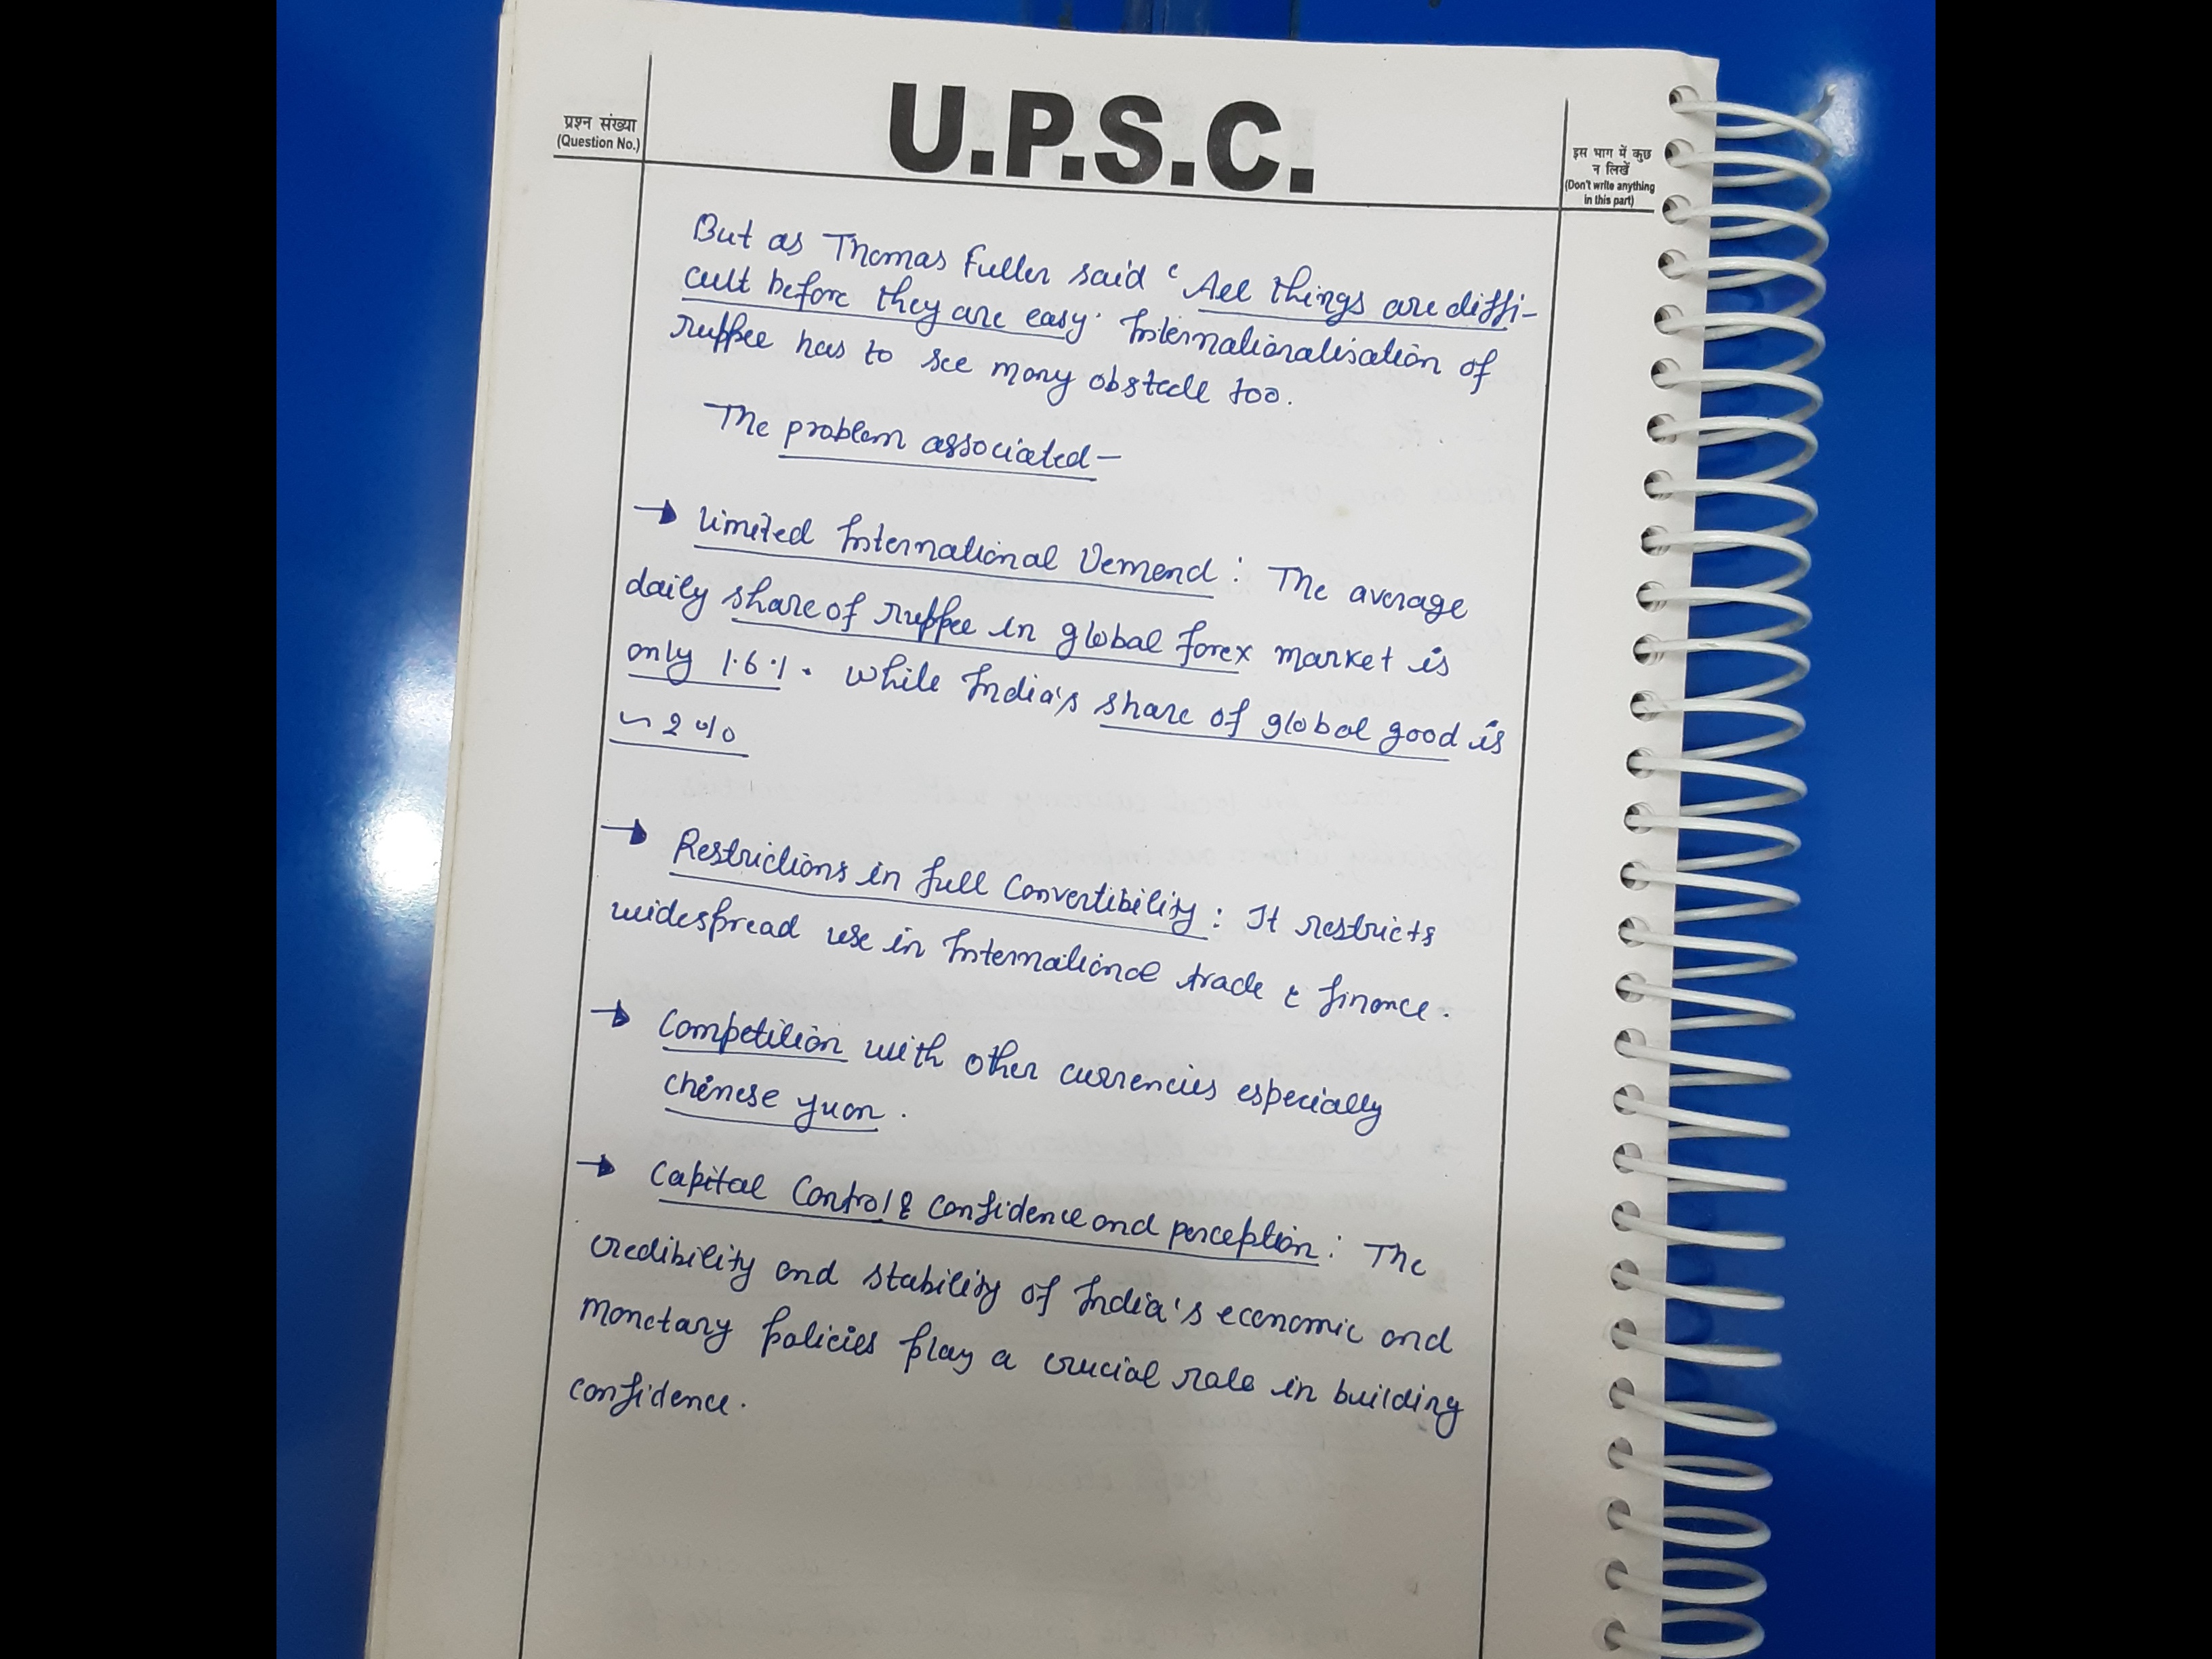 U.P.S.C.
प्रश्न संख्या
(Question No.)
इस भाग में कुछ
न लिखें
(Don't write anything
in this part)
But as Thomas Fuller said 'All things are diffi-
cult before they are easy'. Internationalisation of
ruppee has to see many obstacle too.
The problem associated—
→ Limited International Demend : The average
daily share of ruppee in global forex market is
only 1.6%. While India's share of global good is
~ 2%
→ Restrictions in full Convertibility : It restricts
widespread use in International trade & finance.
→ Competition with other currencies especially
chinese yuan.
→ Capital Control & Confidence and perception : The
credibility and stability of India's economic and
monetary policies play a crucial role in building
confidence.